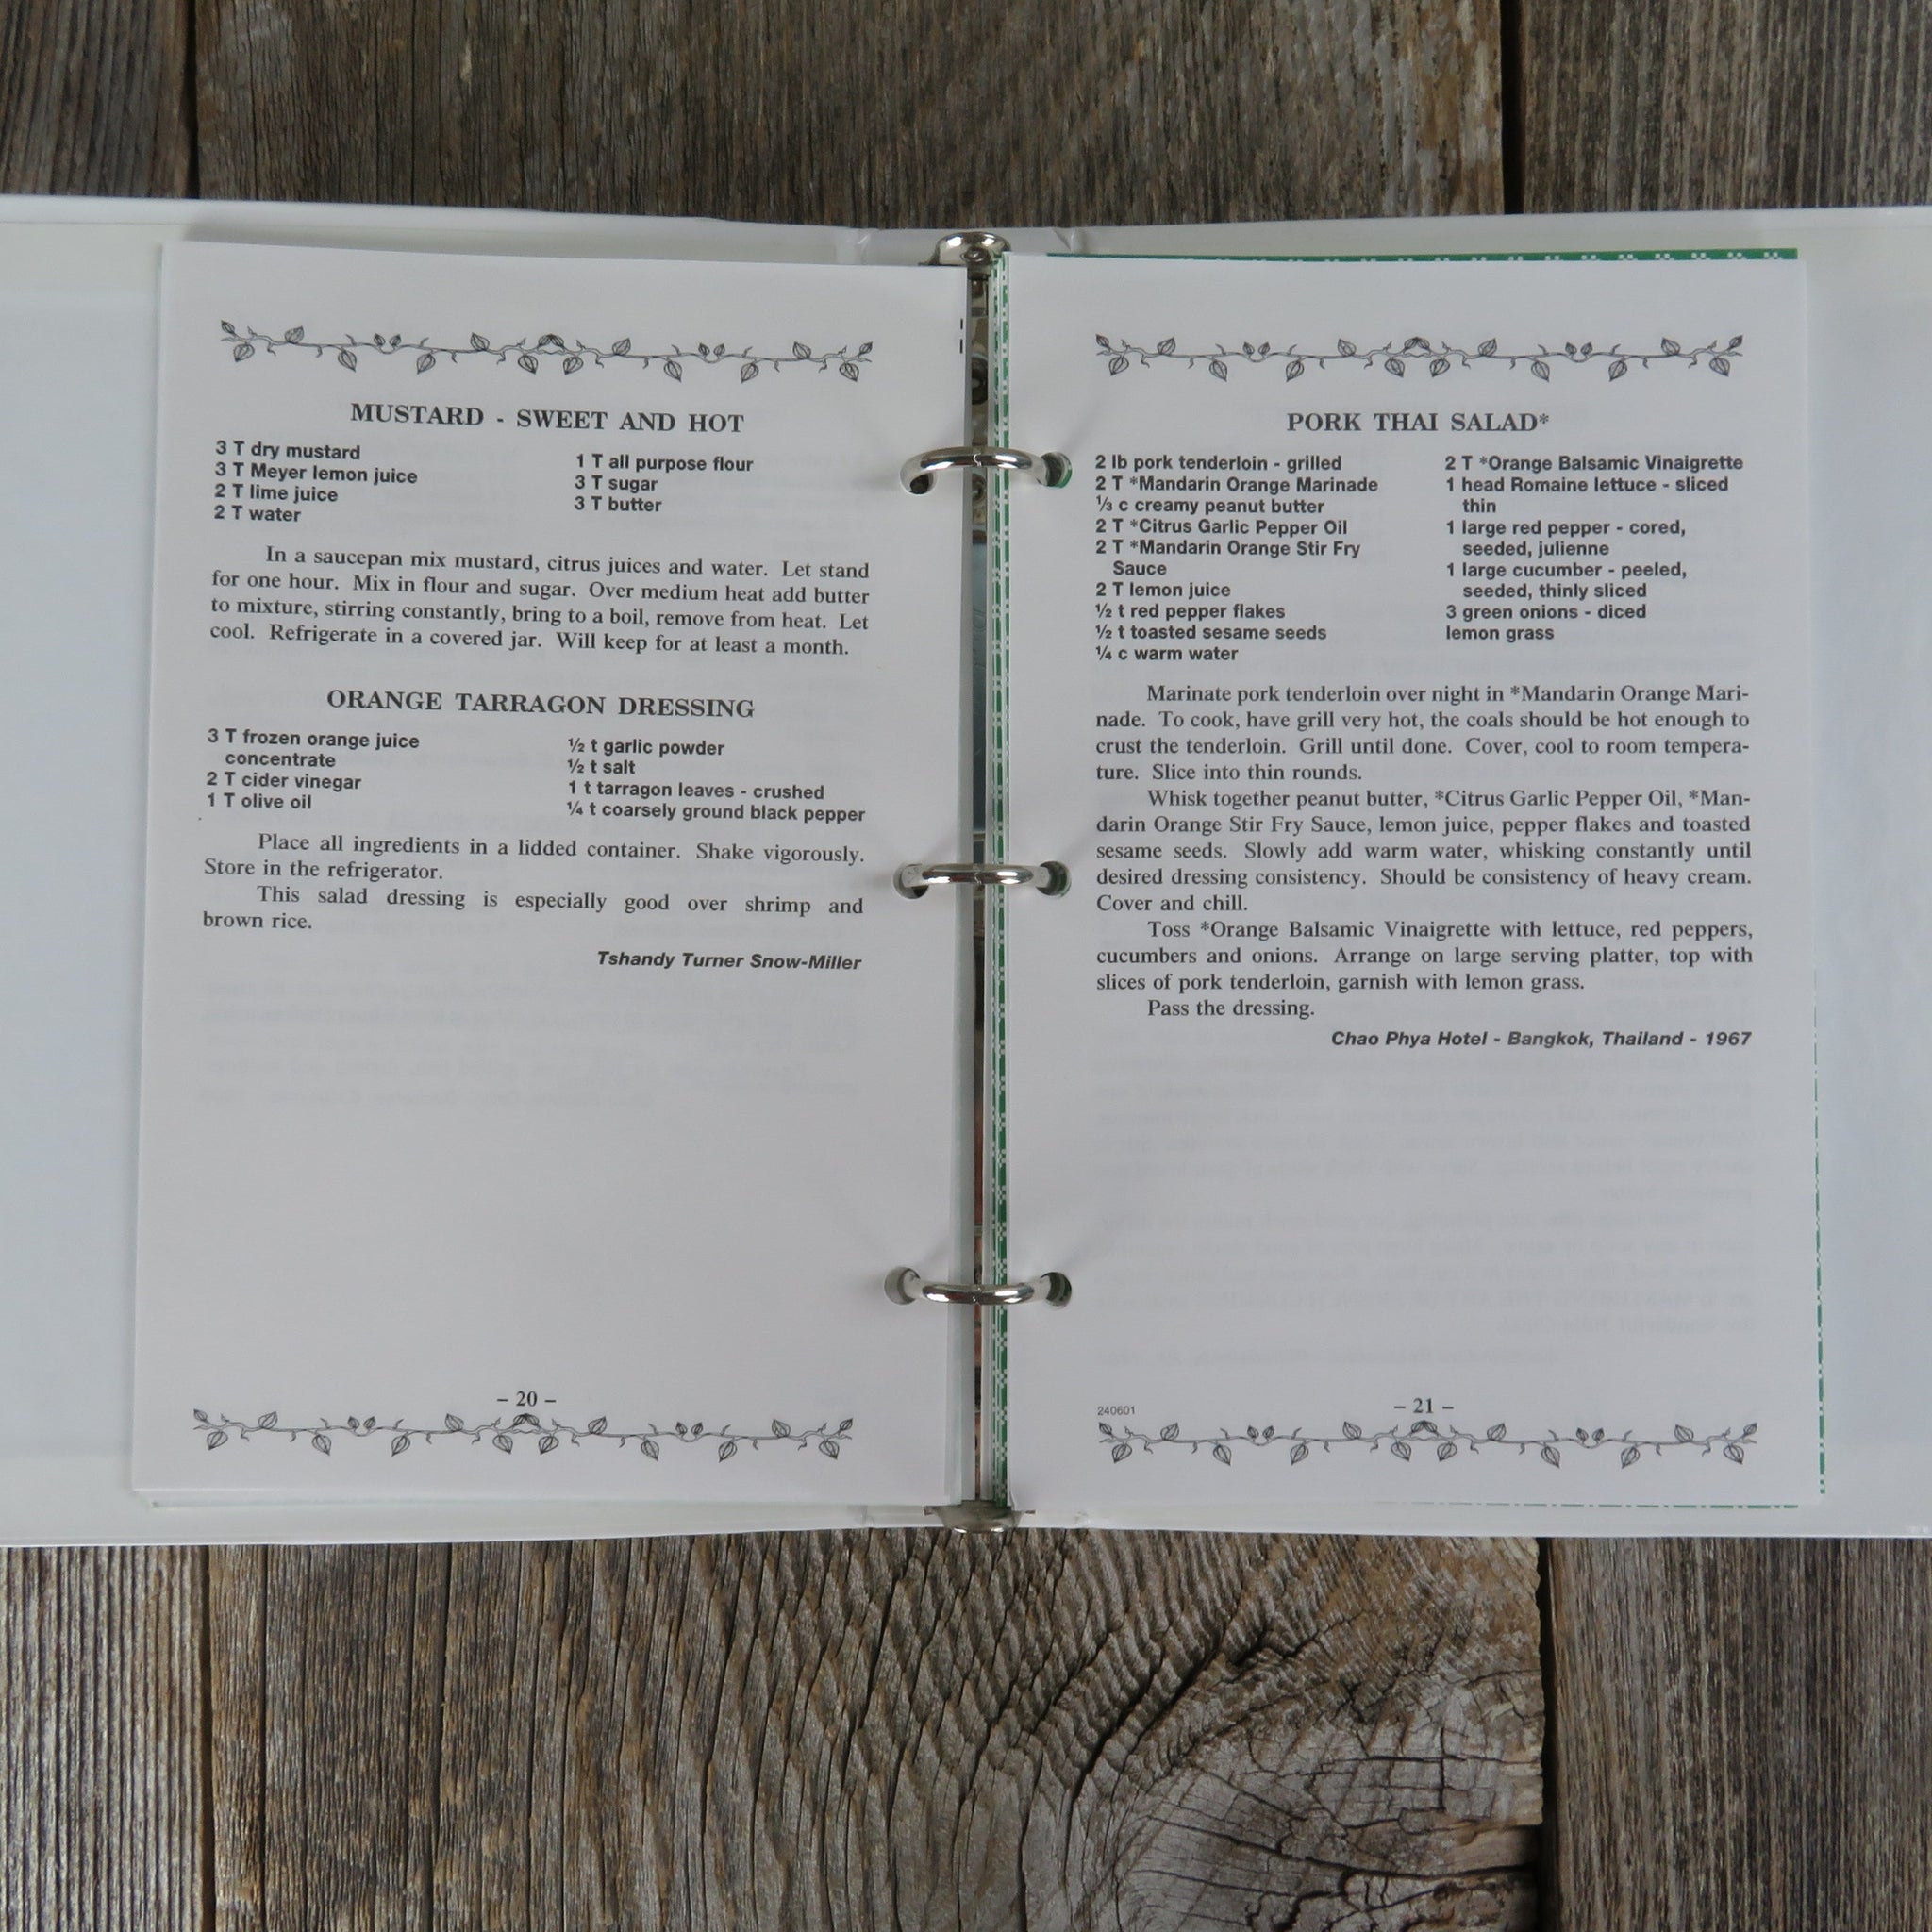 MUSTARD - SWEET AND HOT
3 T dry mustard
3 T Meyer lemon juice
2 T lime juice
2 T water
1 T all purpose flour
3 T sugar
3 T butter
In a saucepan mix mustard, citrus juices and water. Let stand
for one hour. Mix in flour and sugar. Over medium heat add butter
to mixture, stirring constantly, bring to a boil, remove from heat. Let
cool. Refrigerate in a covered jar. Will keep for at least a month.
ORANGE TARRAGON DRESSING
3 T frozen orange juice
concentrate
2 T cider vinegar
1 T olive oil
½ t garlic powder
½ t salt
1 t tarragon leaves - crushed
¼ t coarsely ground black pepper
Place all ingredients in a lidded container. Shake vigorously.
Store in the refrigerator.
This salad dressing is especially good over shrimp and
brown rice.
Tshandy Turner Snow-Miller
– 20 –
PORK THAI SALAD*
2 lb pork tenderloin - grilled
2 T *Mandarin Orange Marinade
⅓ c creamy peanut butter
2 T *Citrus Garlic Pepper Oil
2 T *Mandarin Orange Stir Fry
Sauce
2 T lemon juice
½ t red pepper flakes
½ t toasted sesame seeds
¼ c warm water
2 T *Orange Balsamic Vinaigrette
1 head Romaine lettuce - sliced
thin
1 large red pepper - cored,
seeded, julienne
1 large cucumber - peeled,
seeded, thinly sliced
3 green onions - diced
lemon grass
Marinate pork tenderloin over night in *Mandarin Orange Mari-
nade. To cook, have grill very hot, the coals should be hot enough to
crust the tenderloin. Grill until done. Cover, cool to room tempera-
ture. Slice into thin rounds.
Whisk together peanut butter, *Citrus Garlic Pepper Oil, *Man-
darin Orange Stir Fry Sauce, lemon juice, pepper flakes and toasted
sesame seeds. Slowly add warm water, whisking constantly until
desired dressing consistency. Should be consistency of heavy cream.
Cover and chill.
Toss *Orange Balsamic Vinaigrette with lettuce, red peppers,
cucumbers and onions. Arrange on large serving platter, top with
slices of pork tenderloin, garnish with lemon grass.
Pass the dressing.
Chao Phya Hotel - Bangkok, Thailand - 1967
240601
– 21 –